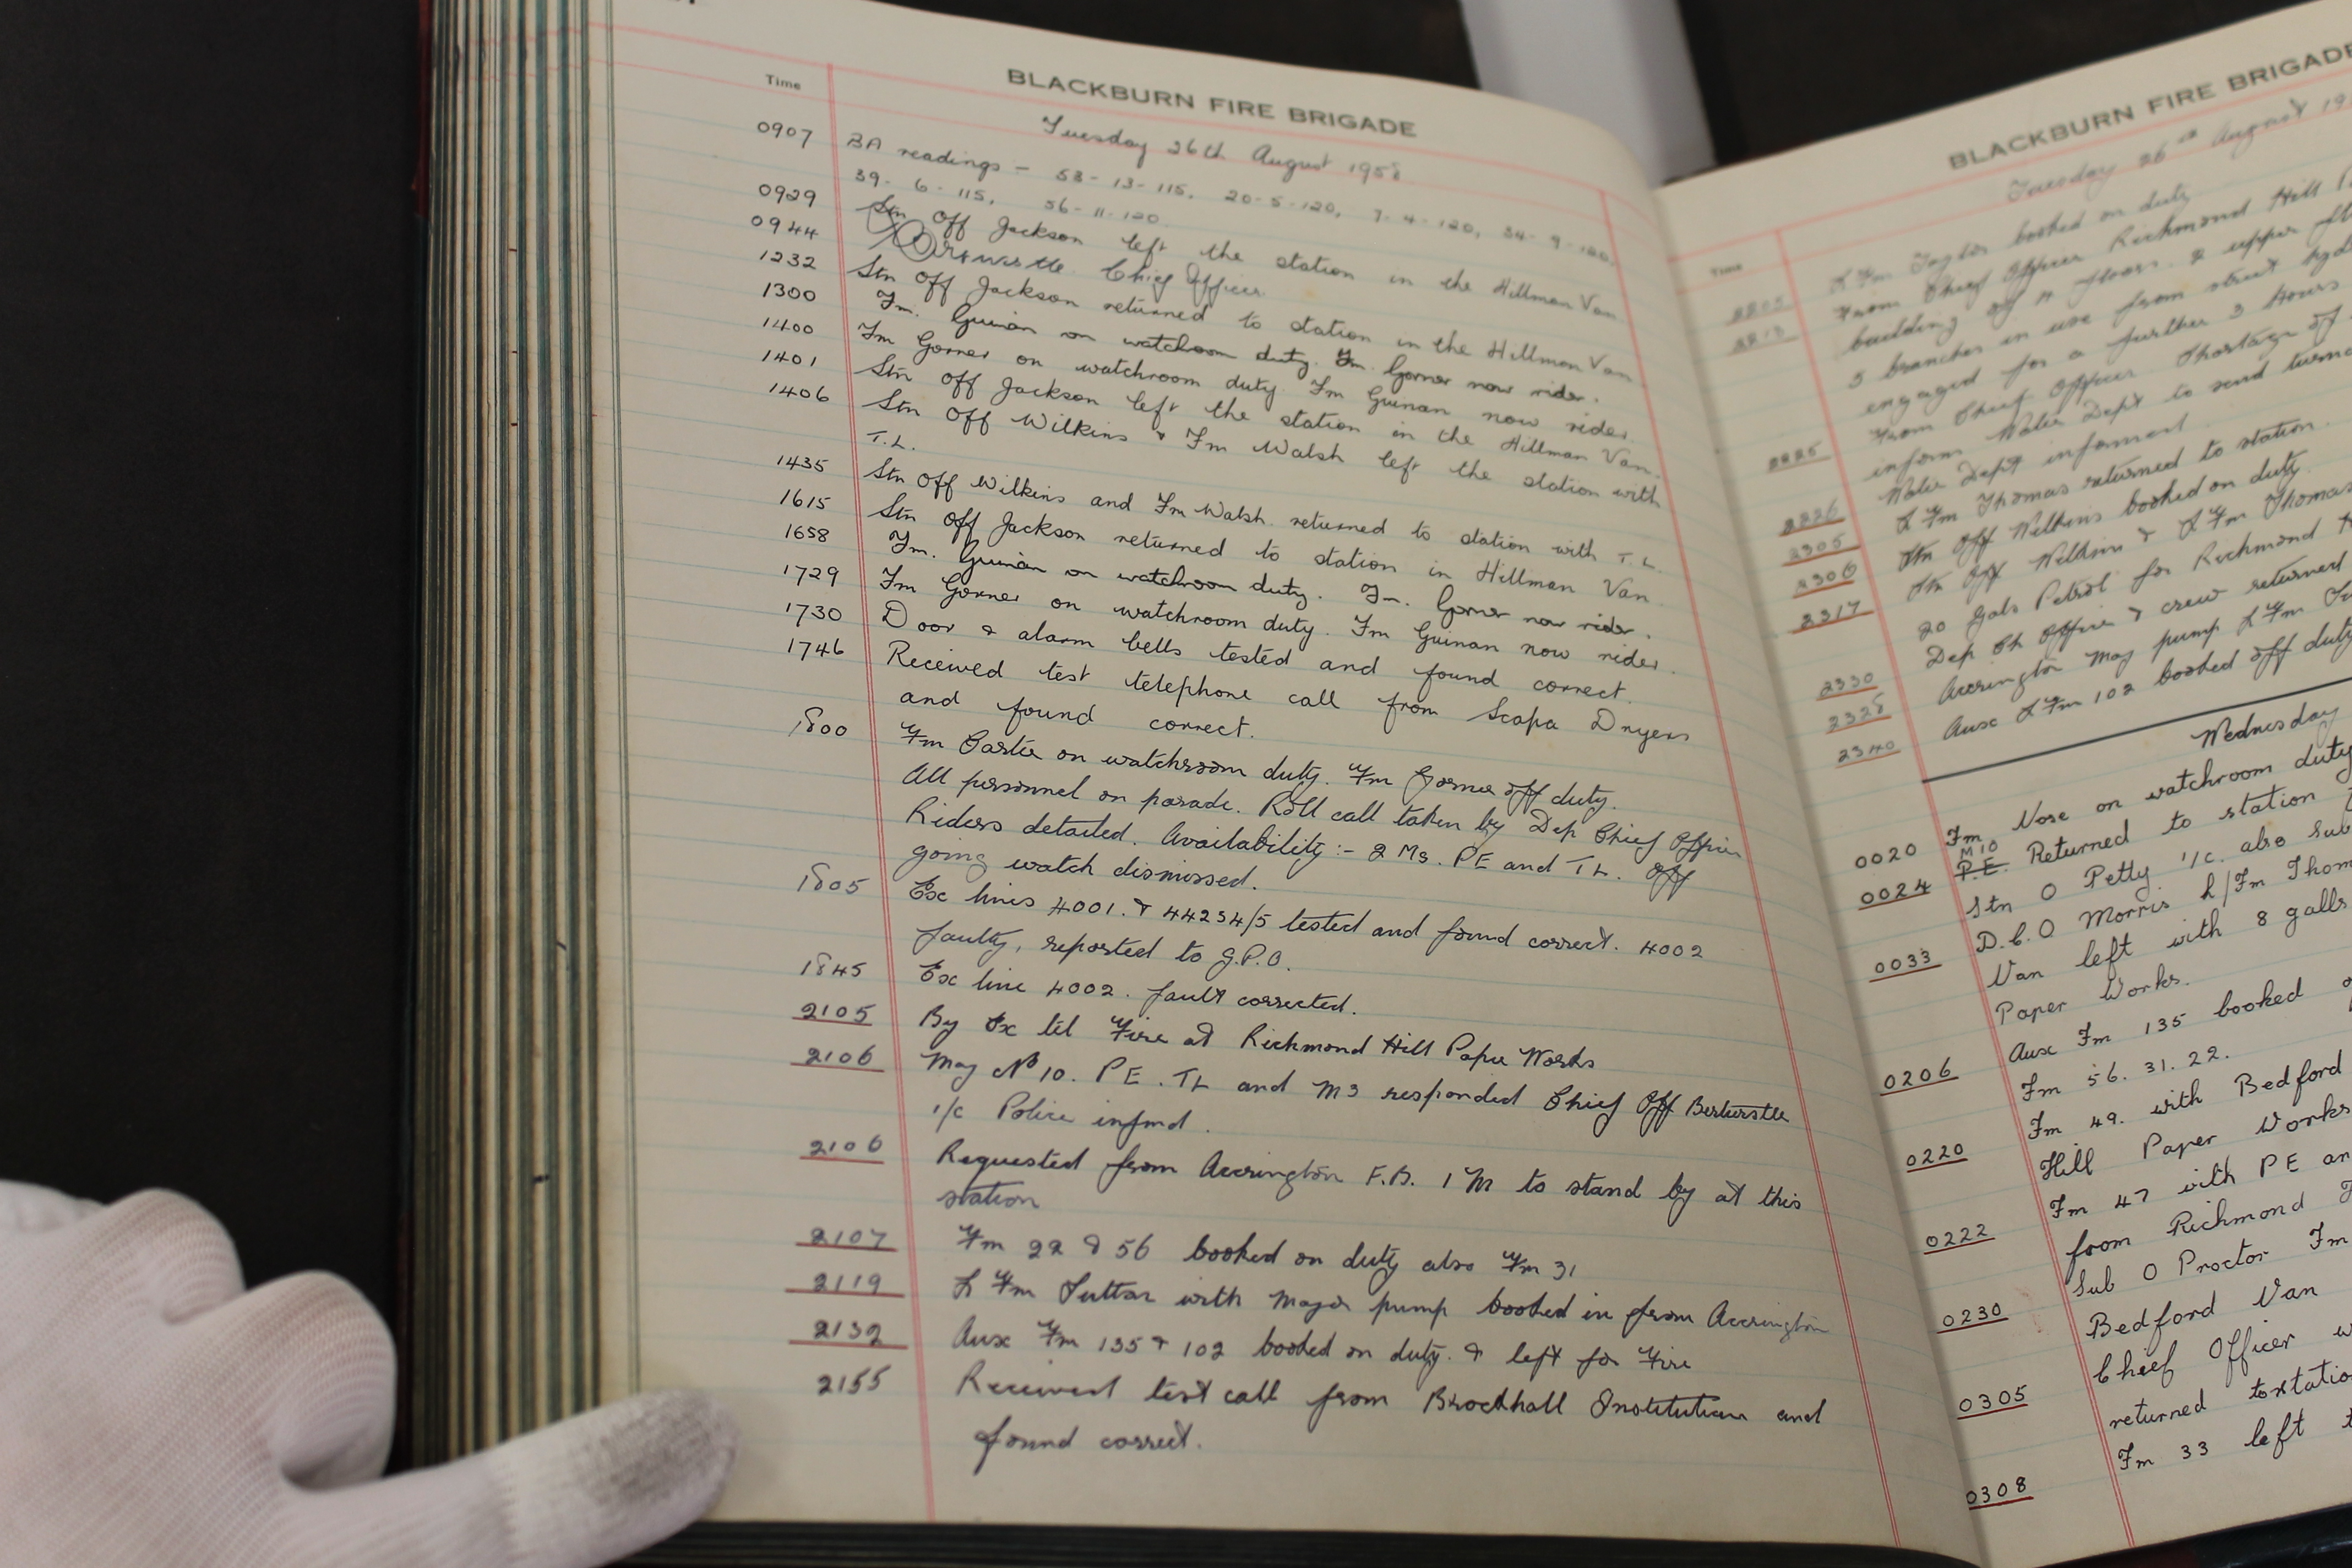 BLACKBURN FIRE BRIGADE
Time
Tuesday 26th August 1958
0907 BA readings – 53-13-115, 20-5-120, 7-4-120, 34-9-120,
39-6-115, 56-11-120
0929 Stn Off Jackson left the station in the Hillman Van
0944 Chief Officer
1232 Stn Off Jackson returned to station in the Hillman Van
1300 Fm. Guinan on watchroom duty. Fm. Gorner now rider.
1400 Fm Gorner on watchroom duty. Fm Guinan now rider
1401 Stn Off Jackson left the station in the Hillman Van.
1406 Stn Off Wilkins & Fm Walsh left the station with
T.L.
1435 Stn Off Wilkins and Fm Walsh returned to station with T.L.
1615 Stn Off Jackson returned to station in Hillman Van
1658 Fm. Guinan on watchroom duty. Fm. Gorner now rider.
1729 Fm Gorner on watchroom duty. Fm Guinan now rider.
1730 Door & alarm bells tested and found correct.
1746 Received test telephone call from Scapa Dryers
and found correct.
1800 Fm on watchroom duty. Fm Gorner off duty.
All personnel on parade. Roll call taken by Dep Chief Officer
Riders detailed. Availability :- 2 Ms. PE and TL. Off
going watch dismissed.
1805 Ex lines 4001. & 44234/5 tested and found correct. 4002
faulty, reported to G.P.O.
1845 Ex line 4002. fault corrected.
2105 By Ex tel Fire at Richmond Hill Paper Works
2106 Maj No 10. PE. TL and M3 responded Chief Off
i/c Police infmd.
2106 Requested from Accrington F.B. 1 M to stand by at this
station
2107 Fm 22 & 56 booked on duty also Fm 31
2119 L Fm with Major pump booked in from Accrington
2132 Aux Fm 135 & 102 booked on duty. & left for Fire
2155 Received test call from Brockhall Institution and
found correct.
BLACKBURN FIRE BRIGADE
Time
Tuesday 26th August 19
2205 L Fm Taylor booked on duty
2213 From Chief Officer Richmond Hill
building of 4 floors. 2 upper
5 branches in use from street hyd
engaged for a further 3 hours
2225 From Chief Officer Shortage of
inform Water Dept to send
Water Dept informed.
2226 L Fm Thomas returned to station.
2305 Stn Off Wilkins booked on duty.
2306 Stn Off Wilkins & L Fm Thomas
2317 20 gals Petrol for Richmond
Dep Ch Officer & crew returned
2330 Accrington Maj pump L Fm
2328 Aux L Fm 102 booked off duty
2340
Wednesday
0020 Fm. Vose on watchroom duty
M10
0024 P.E. Returned to station
Stn O Petty i/c. also Sub
D.C.O Morris L/Fm Thom
0033 Van left with 8 galls
Paper Works.
Aux Fm 135 booked
0206 Fm 56. 31. 22.
Fm 49. with Bedford
0220 Hill Paper Works
Fm 47 with PE an
0222 from Richmond
Sub O Proctor Fm
0230 Bedford Van
Chief Officer
0305 returned to station
Fm 33 left
0308